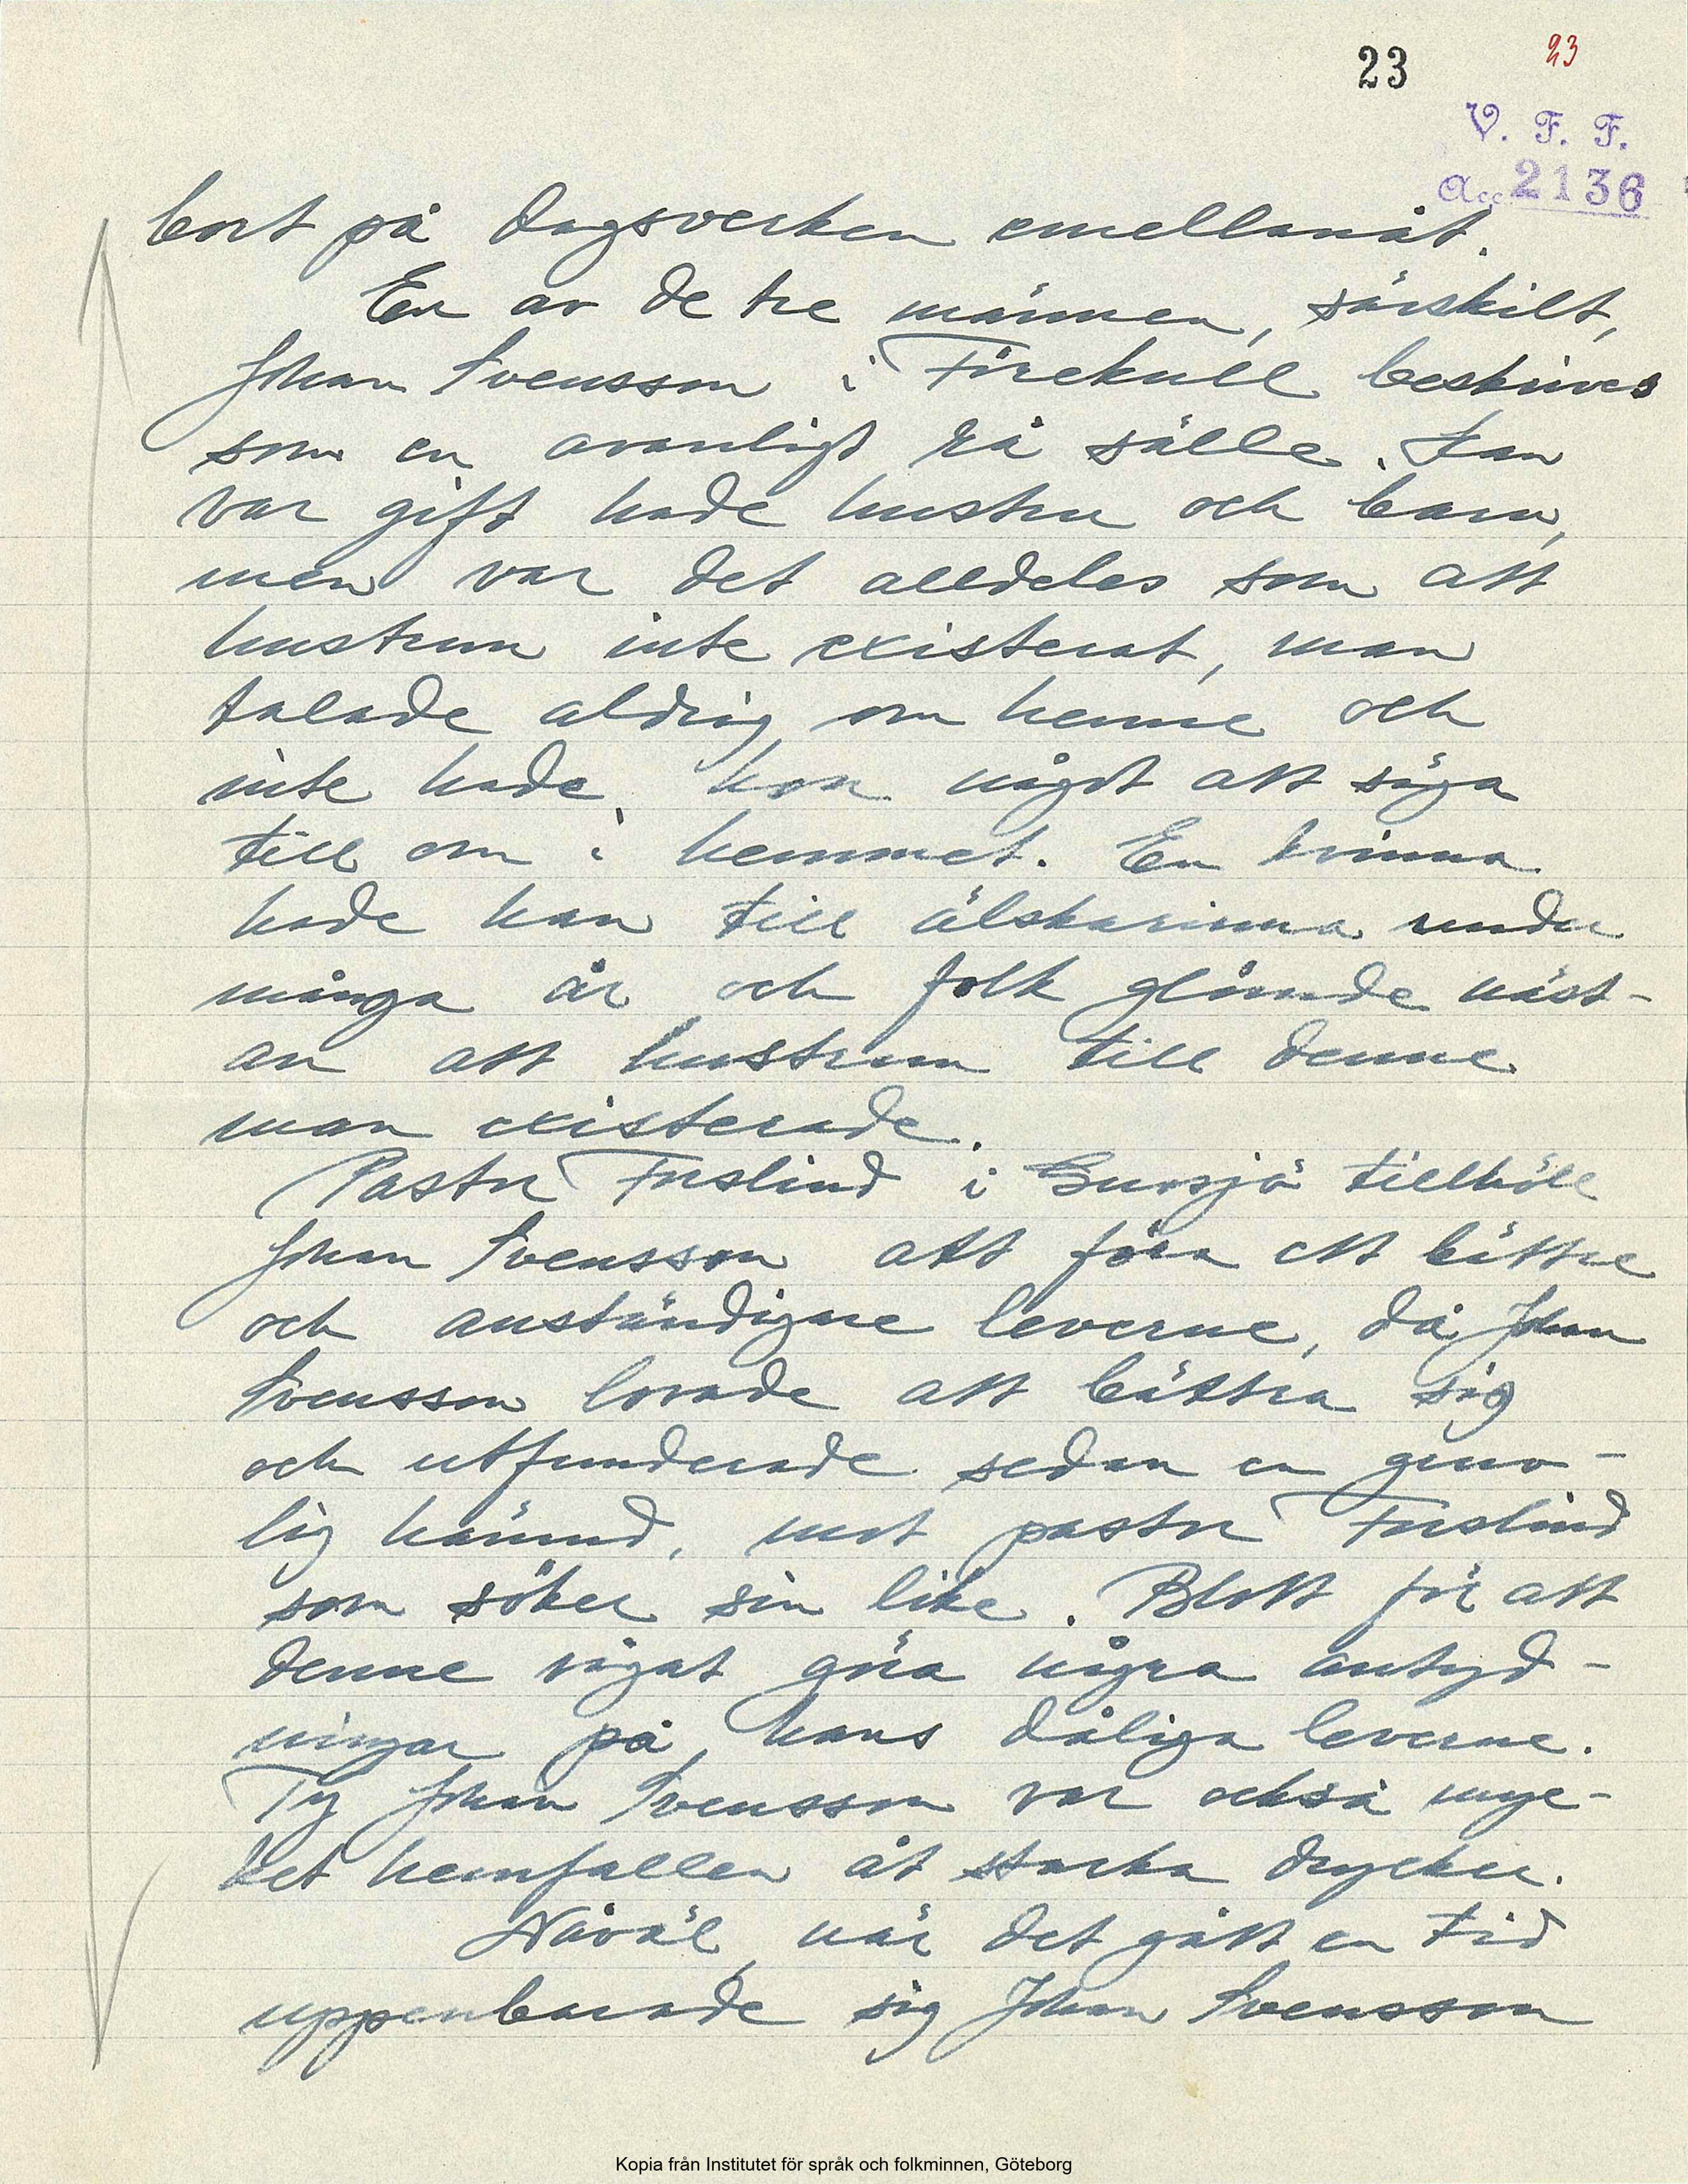 23
23
V. F. F.
Acc 2136
bort på dagsverken emellanåt.
En av de tre männen, särskilt,
Johan Svensson i Förekull beskrives
som en ovanligt rå sälle. Han
var gift hade hustru och barn,
men var det alldeles som att
hustrun inte existerat, man
talade aldrig om henne och
inte hade hon något att säga
till om i hemmet. En kvinna
hade han till älskarinna under
många år och folk glömde näst-
an att hustrun till denne
man existerade.
Pastor Forslind i tillhöll
Johan Svensson att föra ett bättre
och anständigare leverne, då Johan
Svensson lovade att bättra sig
och utfunderade sedan en gruv-
lig hämnd, mot pastor Forslind
som söker sin like. Blott för att
denne vågat göra några antyd-
ningar på hans dåliga leverne.
Ty Johan Svensson var också myc-
ket hemfallen åt starka drycker.
Nåväl, när det gått en tid
uppenbarade sig Johan Svensson
Kopia från Institutet för språk och folkminnen, Göteborg